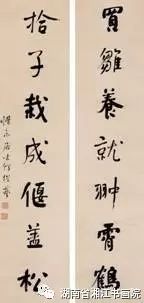 買雛養就翀霄鶴
拾子栽成偃蓋松
湖南省湘江书画院